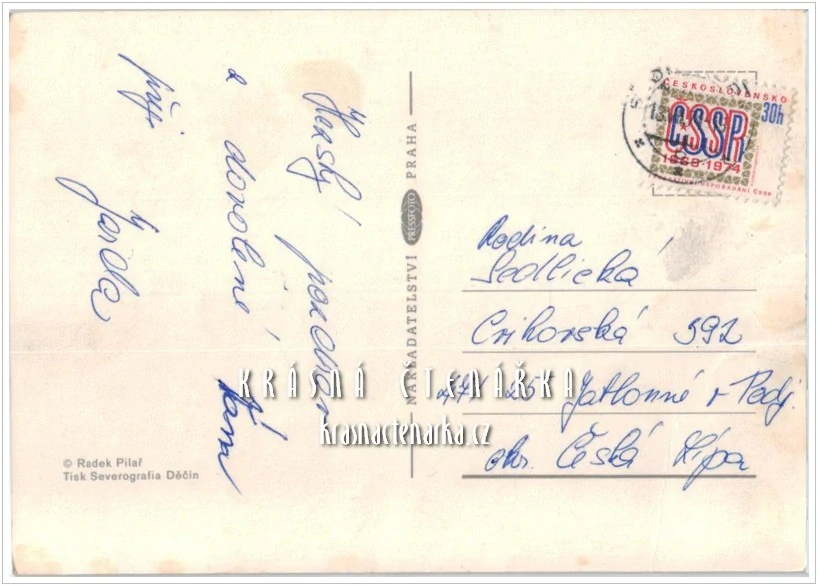 Hezký pozdrav
z dovolené Vám
přeje
Jarda
© Radek Pilař
Tisk Severografia Děčín
NAKLADATELSTVÍ PRESSFOTO PRAHA
ČESKOSLOVENSKO
30h
ČSSR
1969-1974
Rodina
Sedlická
Cvikovská 392
471 25 Jablonné v Podj.
okr. Česká Lípa
KRÁSNÁ ČTENÁŘKA
krasnactenarka.cz